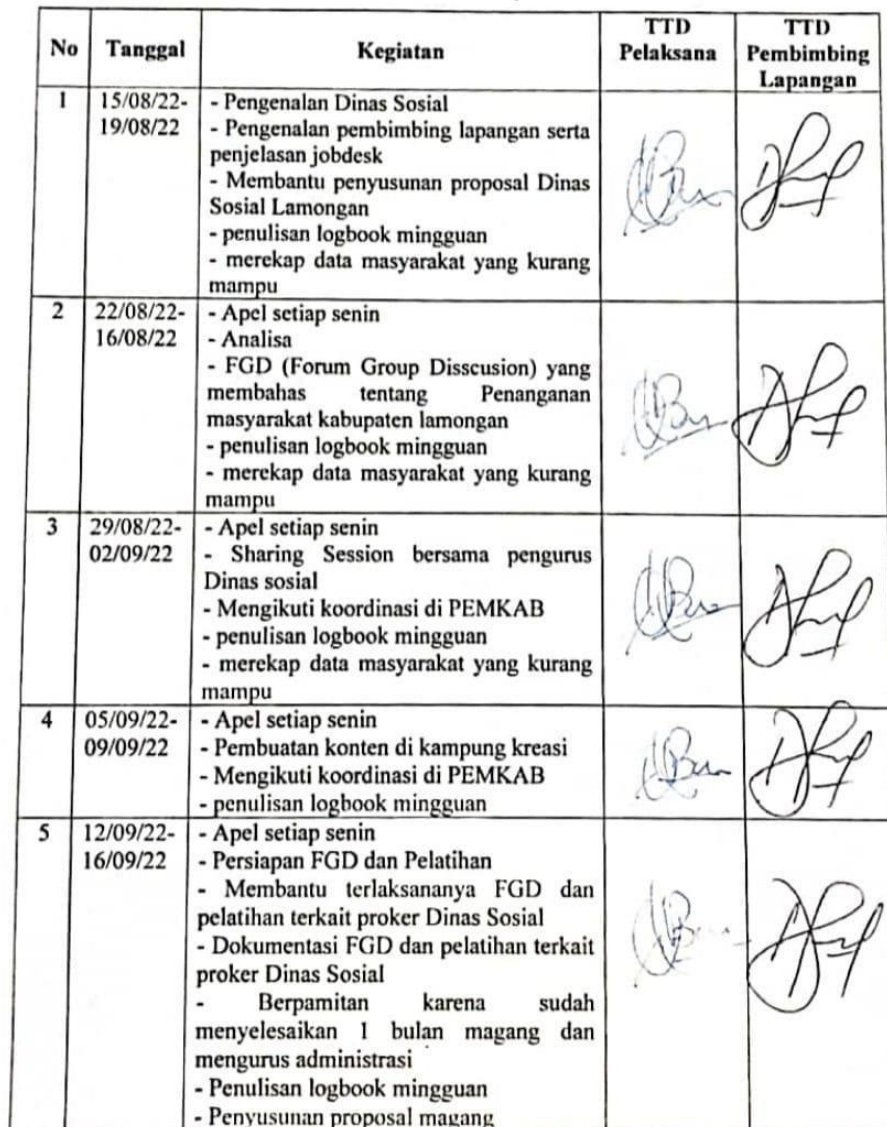 No Tanggal Kegiatan TTD Pelaksana TTD Pembimbing Lapangan
1 15/08/22- - Pengenalan Dinas Sosial
19/08/22 - Pengenalan pembimbing lapangan serta
penjelasan jobdesk
- Membantu penyusunan proposal Dinas
Sosial Lamongan
- penulisan logbook mingguan
- merekap data masyarakat yang kurang
mampu
2 22/08/22- - Apel setiap senin
16/08/22 - Analisa
- FGD (Forum Group Disscusion) yang
membahas tentang Penanganan
masyarakat kabupaten lamongan
- penulisan logbook mingguan
- merekap data masyarakat yang kurang
mampu
3 29/08/22- - Apel setiap senin
02/09/22 - Sharing Session bersama pengurus
Dinas sosial
- Mengikuti koordinasi di PEMKAB
- penulisan logbook mingguan
- merekap data masyarakat yang kurang
mampu
4 05/09/22- - Apel setiap senin
09/09/22 - Pembuatan konten di kampung kreasi
- Mengikuti koordinasi di PEMKAB
- penulisan logbook mingguan
5 12/09/22- - Apel setiap senin
16/09/22 - Persiapan FGD dan Pelatihan
- Membantu terlaksananya FGD dan
pelatihan terkait proker Dinas Sosial
- Dokumentasi FGD dan pelatihan terkait
proker Dinas Sosial
- Berpamitan karena sudah
menyelesaikan 1 bulan magang dan
mengurus administrasi
- Penulisan logbook mingguan
- Penyusunan proposal magang